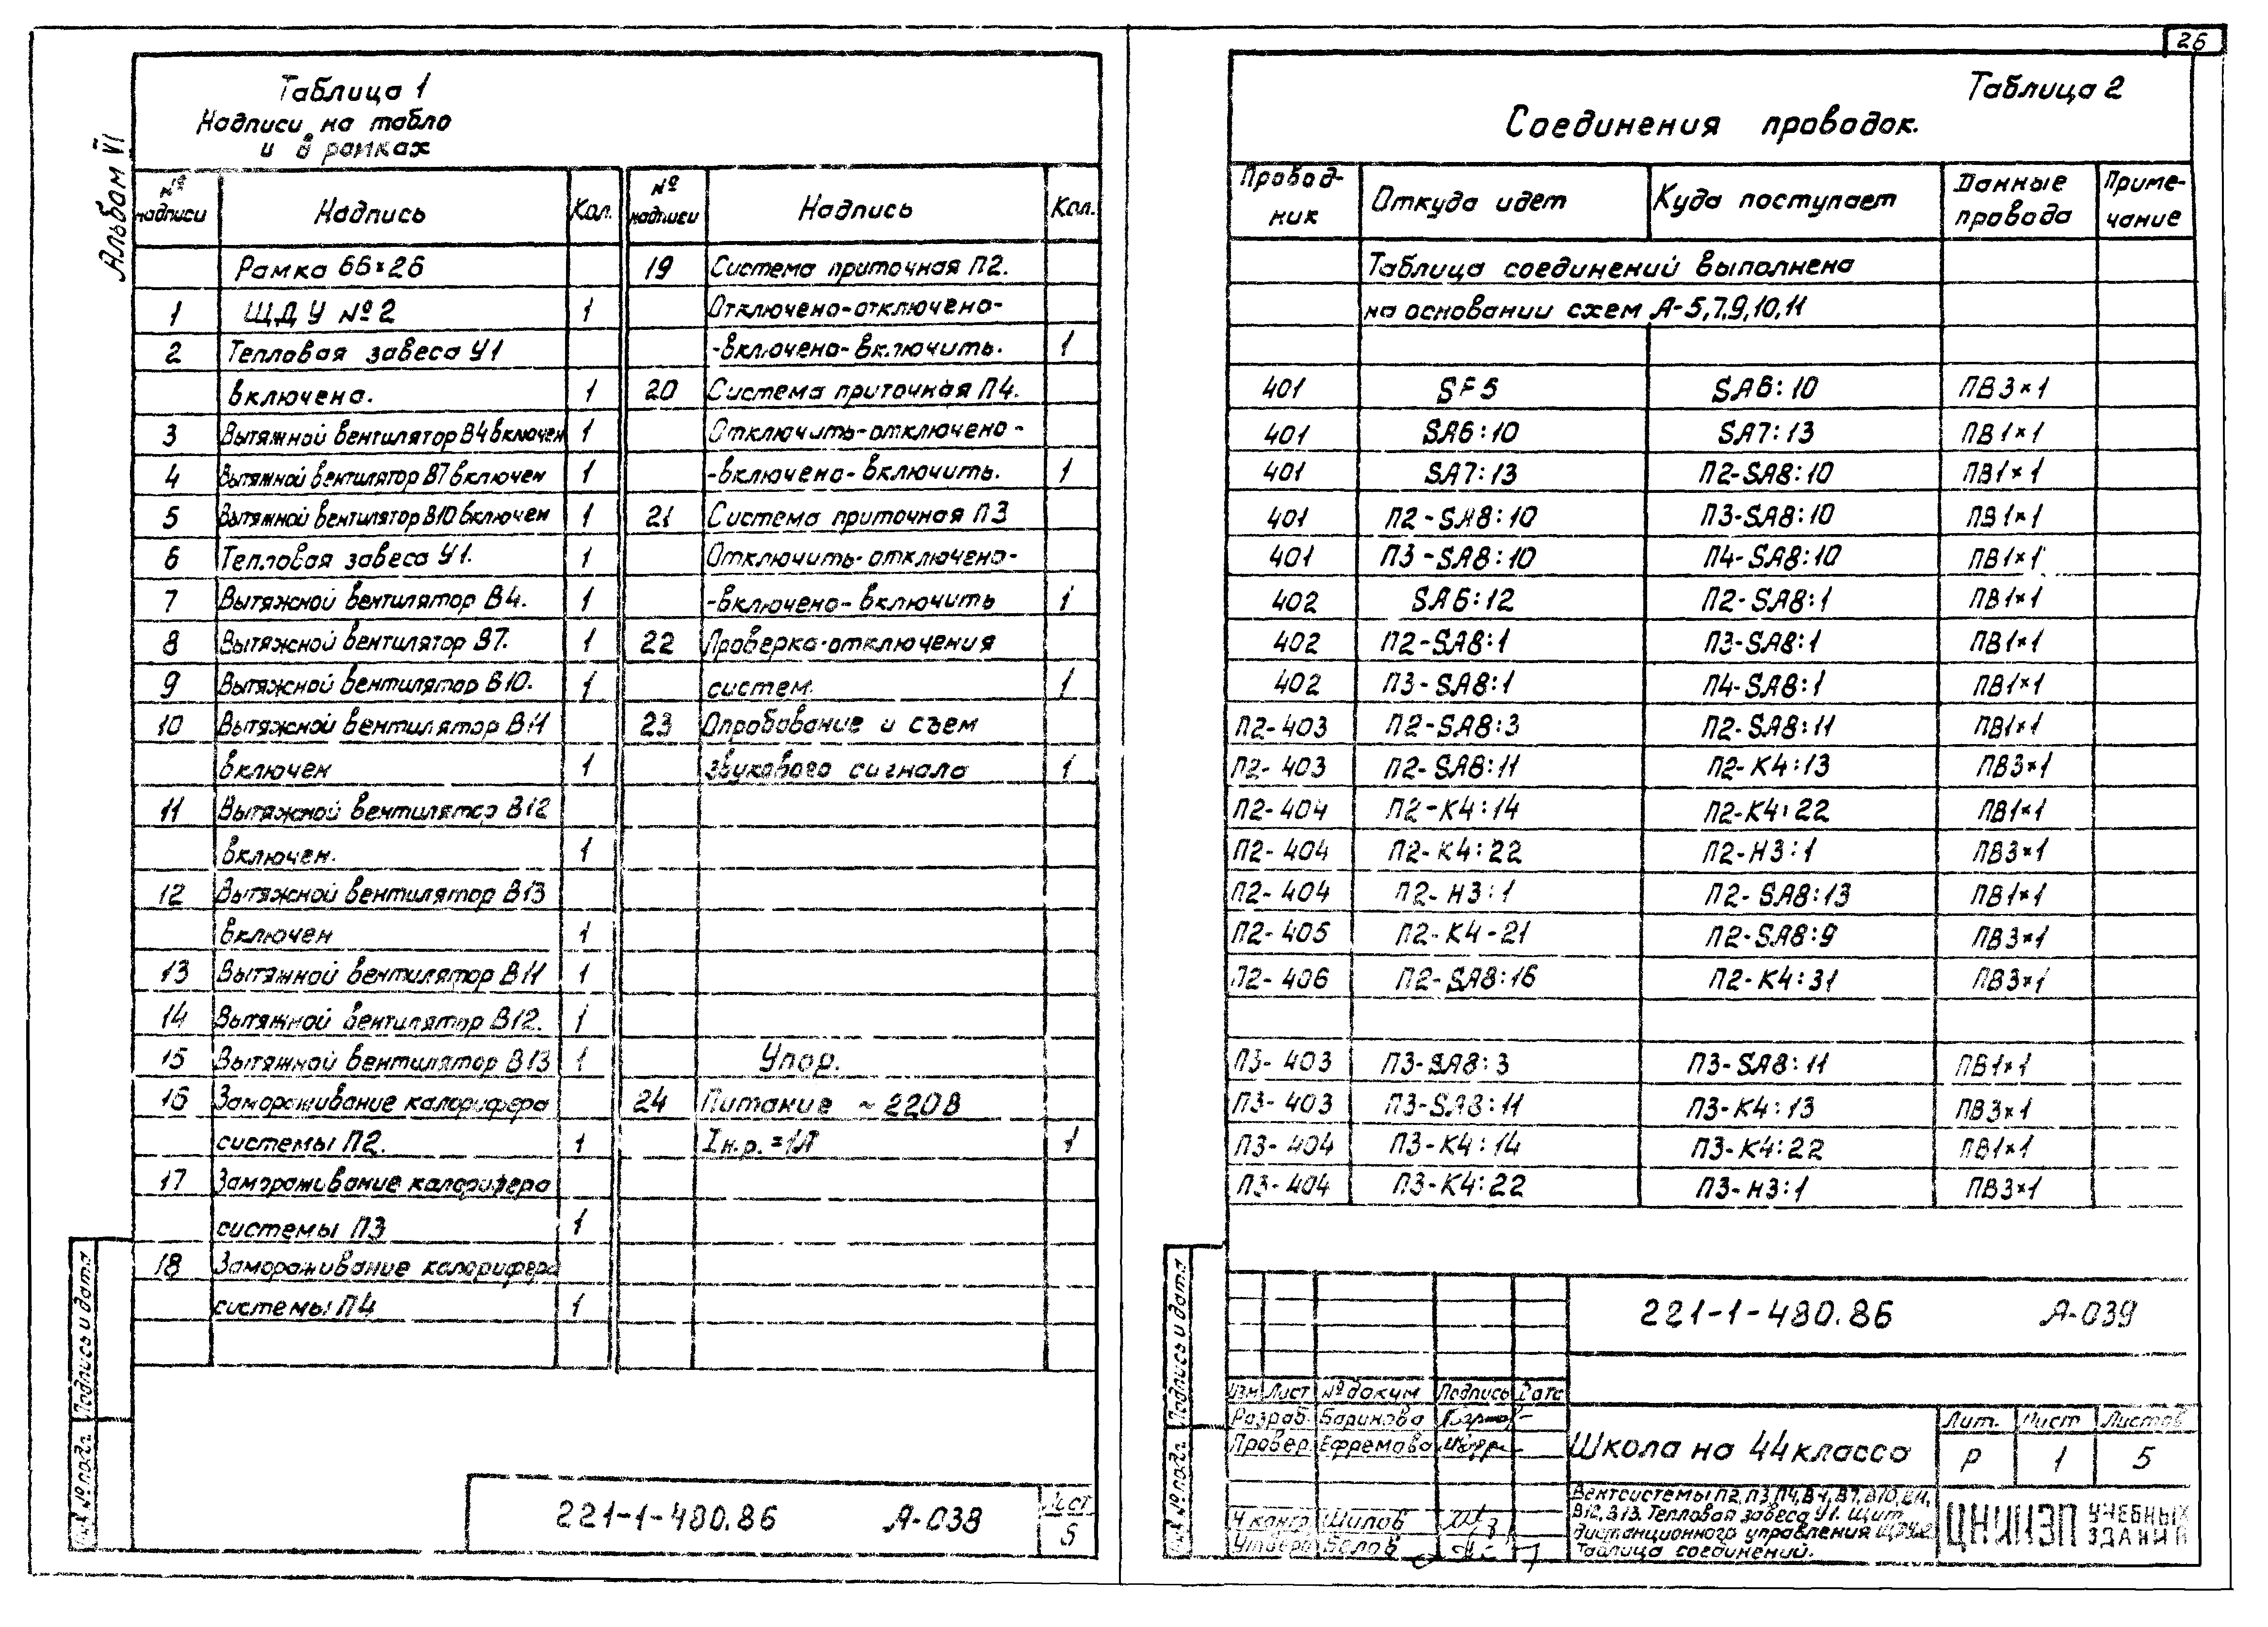 26
Альбом VI
Таблица 1
Надписи на табло
и в рамках
№ надписи Надпись Кол. № надписи Надпись Кол.
Рамка 66×26
1 ЩДУ №2 1
2 Тепловая завеса У1
включена. 1
3 Вытяжной вентилятор В4 включен 1
4 Вытяжной вентилятор В7 включен 1
5 Вытяжной вентилятор В10 включен 1
6 Тепловая завеса У1. 1
7 Вытяжной вентилятор В4. 1
8 Вытяжной вентилятор В7. 1
9 Вытяжной вентилятор В10. 1
10 Вытяжной вентилятор В11
включен 1
11 Вытяжной вентилятор В12
включен. 1
12 Вытяжной вентилятор В13
включен 1
13 Вытяжной вентилятор В11 1
14 Вытяжной вентилятор В12. 1
15 Вытяжной вентилятор В13 1
16 Замораживание калорифера
системы П2. 1
17 Замораживание калорифера
системы П3 1
18 Замораживание калорифера
системы П4 1
19 Система приточная П2.
Отключено-отключено-
-включено-включить. 1
20 Система приточная П4.
Отключить-отключено-
-включено-включить. 1
21 Система приточная П3
Отключить-отключено-
-включено-включить 1
22 Проверка отключения
систем. 1
23 Опробование и съем
звукового сигнала 1
Упор.
24 Питание ~220В
Iн.р.=1А 1
Подпись и дата
Инв. № подл.
221-1-480.86 А-038
Лист
5
Таблица 2
Соединения проводок.
Провод-
ник Откуда идет Куда поступает Данные
провода Приме-
чание
Таблица соединений выполнена
на основании схем А-5,7,9,10,11
401 SF5 SA6:10 ПВ3×1
401 SA6:10 SA7:13 ПВ1×1
401 SA7:13 П2-SA8:10 ПВ1×1
401 П2-SA8:10 П3-SA8:10 ПВ1×1
401 П3-SA8:10 П4-SA8:10 ПВ1×1
402 SA6:12 П2-SA8:1 ПВ1×1
402 П2-SA8:1 П3-SA8:1 ПВ1×1
402 П3-SA8:1 П4-SA8:1 ПВ1×1
П2-403 П2-SA8:3 П2-SA8:11 ПВ1×1
П2-403 П2-SA8:11 П2-К4:13 ПВ3×1
П2-404 П2-К4:14 П2-К4:22 ПВ1×1
П2-404 П2-К4:22 П2-Н3:1 ПВ3×1
П2-404 П2-Н3:1 П2-SA8:13 ПВ1×1
П2-405 П2-К4-21 П2-SA8:9 ПВ3×1
П2-406 П2-SA8:16 П2-К4:31 ПВ3×1
П3-403 П3-SA8:3 П3-SA8:11 ПВ1×1
П3-403 П3-SA8:11 П3-К4:13 ПВ3×1
П3-404 П3-К4:14 П3-К4:22 ПВ1×1
П3-404 П3-К4:22 П3-Н3:1 ПВ3×1
Подпись и дата
Инв. № подл.
221-1-480.86 А-039
Изм Лист № докум Подпись Дата
Разраб. Баринова
Провер. Ефремова
Н контр Шилов
Утверд Белов
Школа на 44 класса
Лит. Лист Листов
Р 1 5
Вентсистемы П2, П3, П4, В4, В7, В10, В11,
В12, В13. Тепловая завеса У1. Щит
дистанционного управления ЩДУ2
Таблица соединений.
ЦНИИЭП УЧЕБНЫХ
ЗДАНИЙ